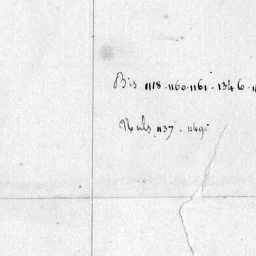 Bis 1118 . 1160 . 1161 . 1346 .
Nuls 1137 . 1149